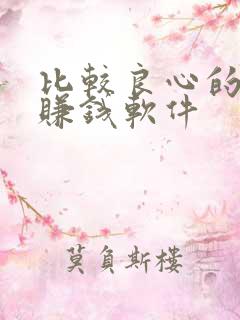 比較良心的
賺錢軟件
莫負斯樓